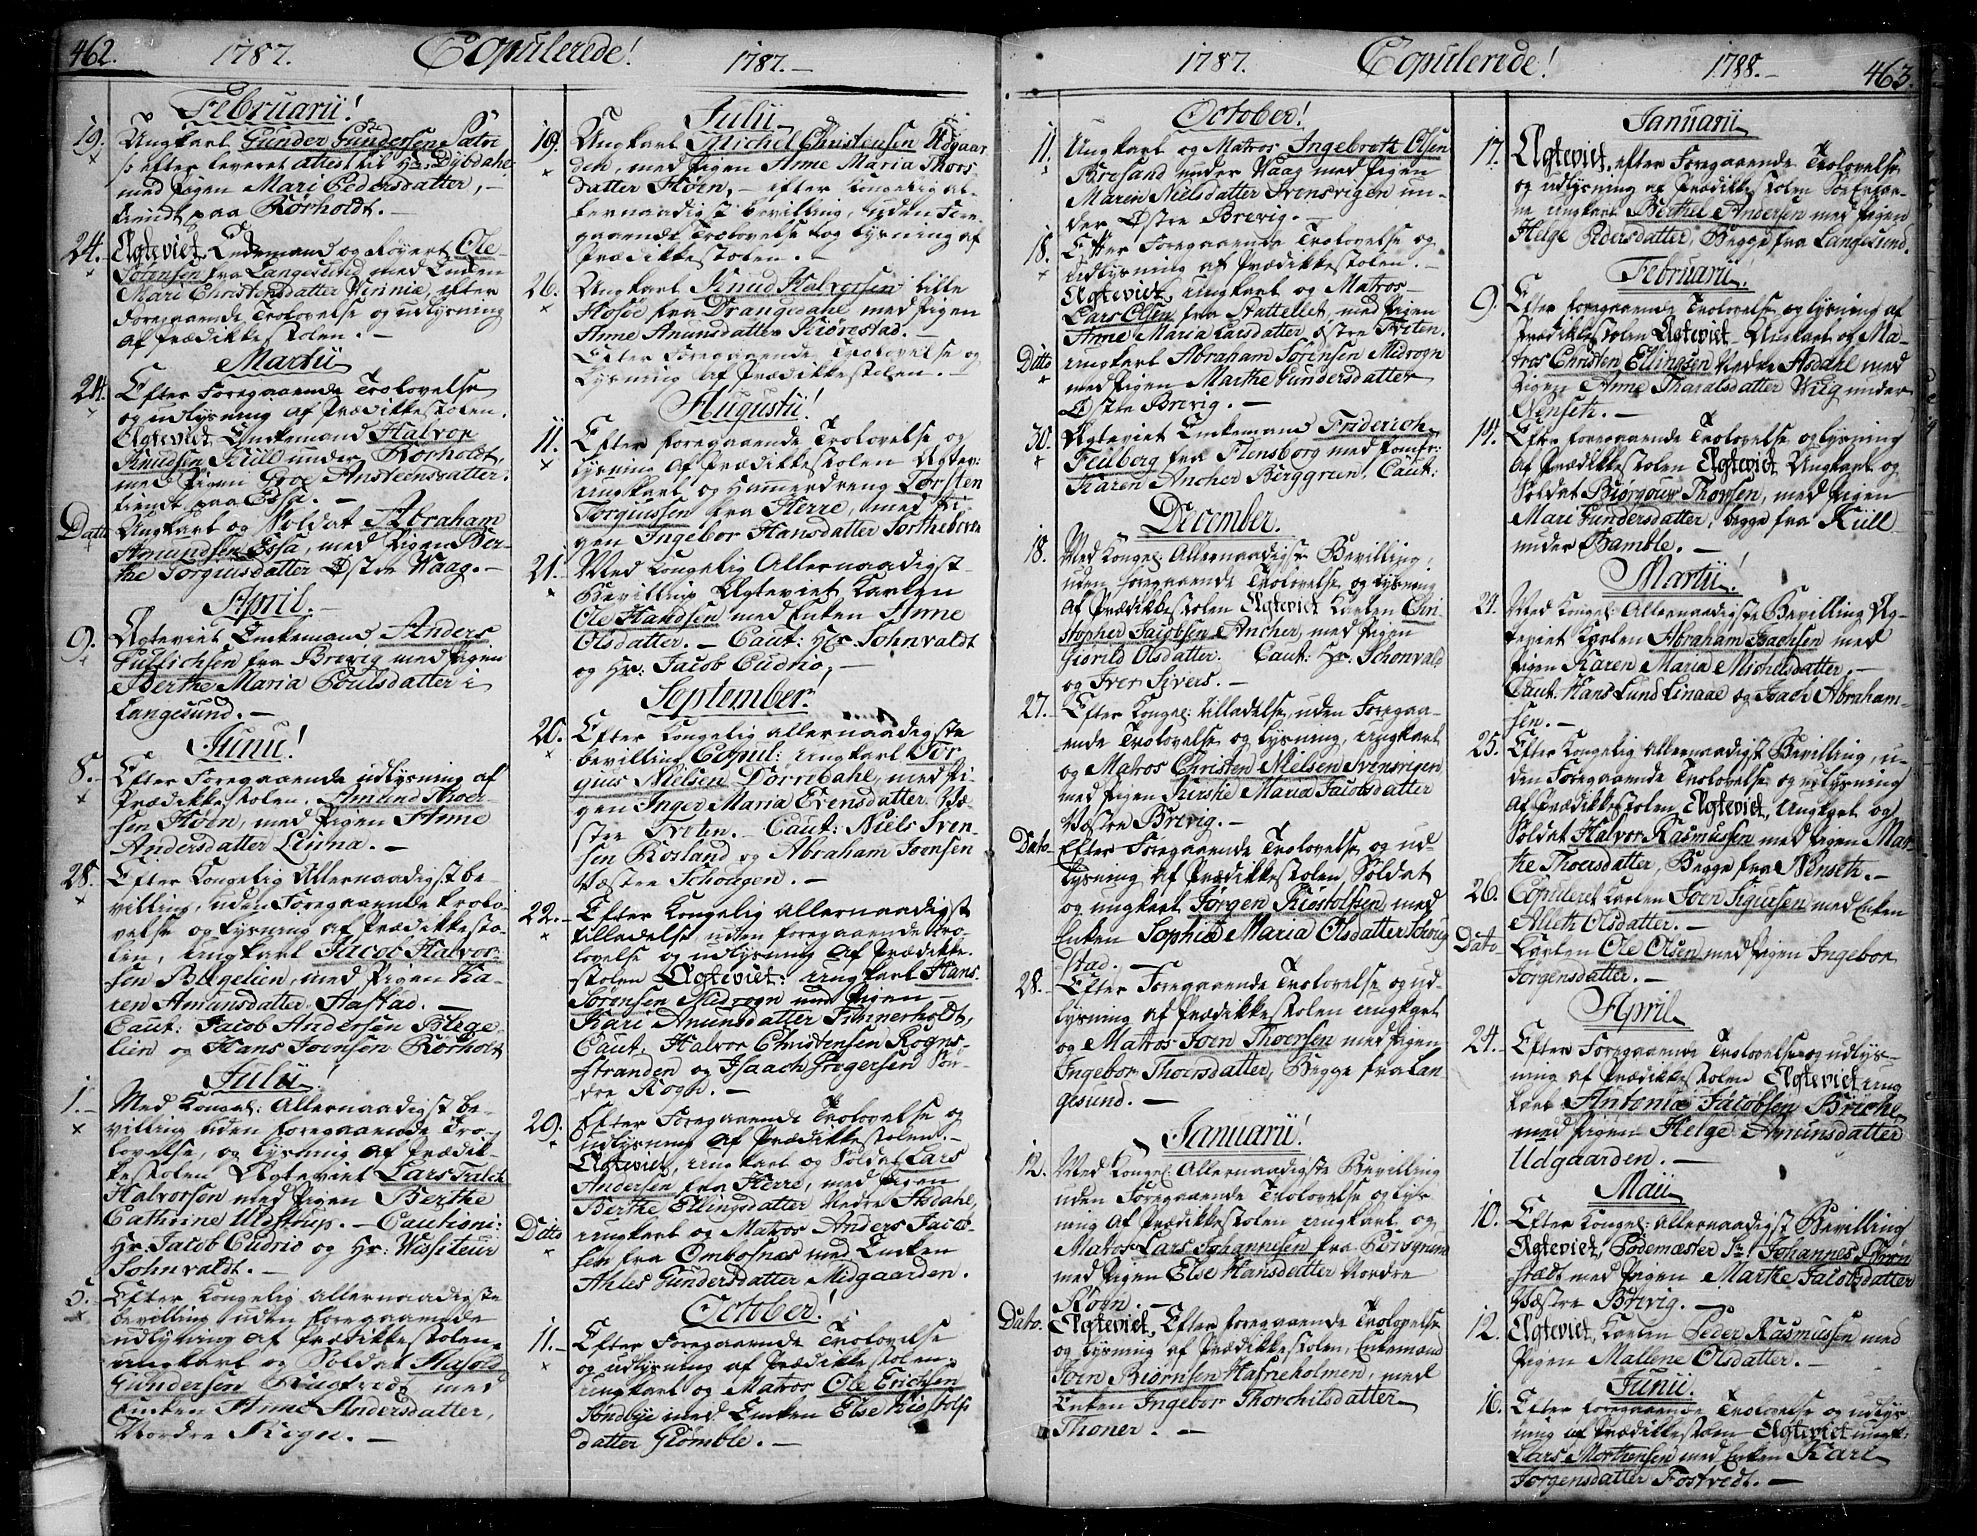 462. 1787. Copulerede! 1787.
Februarii!
19. Ungkarl Gunder Gundersen
efter leveret Attest til Hr: Dybdahl
med Pigen Mari Pedersdatter,
tient paa Rørholdt.
24. Ægteviet, Enkemand og Røyert Ole
Sørensen fra Langesund med Enken
Mari Christensdatter Virinia, efter
foregaaende Trolovelse og udlysning
af Prædikkestolen.
Martii
24. Efter Foregaaende Trolovelse
og udlysning af Prædikkestolen.
Ægteviet Enkemand Halvor
Knudsen Kiill under Rørholdt,
med Pigen Groe Ansteensdatter.
tient paa Essa.
Datto Ungkarl og Soldat Abraham
Amundsen Essa, med Pigen Ber-
the Torgiusdatter Østre Waag.
April.
9. Ægteviet Enkemand, Anders
Gullichsen fra Brevig med Pigen
Berthe Maria Poulsdatter i
Langesund.
Junii!
8. Efter Foregaaende udlysning af
Prædikkestolen. Amund Thoer-
sen Høen, med Pigen Anne
Andersdatter Linna.
28. Efter Kongelig Allernaadigst be-
villing, uden Foregaaende Trolo-
velse og Lysning af Prædikkesto-
len, ungkarl Jacob Halvor-
sen Blegelien, med Pigen Ka-
ren Amunsdatter Hafstad.
Caut: Jacob Andersen Blege
lien og Hans Joensen Rørholt
Julii!
1. Med Kongel: Allernaadigst be-
villing uden foregaaende Tro-
lovelse, og Lysning af Prædik-
kestolen Ægteviet Lars Falck
Halvorsen med Pigen Berthe
Cathrine Uldstrup. Cautioni:
Hr. Jacob Cudrio og Hr: Wissiteur
Sohnvaldt.
5. Efter Kongelig allernaadigste
bevilling uden foregaaende
udlysning af Prædikkestolen
ungkarl og Soldat
Gundersen med
Enken Anne Andersdatter,
Nordre Rogn.
Julii
19. Ungkarl Michel Christensen Udgaar
den, med Pigen Anne Maria Thors-
datter Høen, efter Kongelig al-
lernaadigst bevilling, uden Fore-
gaaende Trolovelse og Lysning af
Prædikkestolen.
26. Ungkarl Knud Halvorsen lille
Hosøe fra Drangedahl med Pigen
Anne Anunsdatter Kiørestad.
Efter Foregaaende Trolovelse og
Lysning af Prædikkestolen.
Augustii!
11. Efter foregaaende Trolovelse og
Lysning af Prædikkestolen Ægtev:
ungkarl og Hammerdreng Torsten
Torgiussen fra Herre, med Pi-
gen Ingebor Hansdatter
21. Med Kongelig Allernaadigst
Bevilling Ægteviet Karlen
Ole Handsen med Enken Anne
Olsdatter. Caut: Hr Sohnvaldt
og Hr: Jacob Cudrio,
September!
20. Efter Kongelig allernaadigste
bevilling Copul: ungkarl Tor
gius Nielsen Dørredahl, med Pi-
gen Inger Maria Evensdatter Væ-
stre Tveten. Caut: Niels Iven-
sen Rørland og Abraham Ivensen
Væstre Schougen.
22. Efter Kongelig allernaadigst
tilladelse, uden foregaaende Tro-
lovelse og udlysning af Prædikke-
stolen Ægteviet: ungkarl Hans
Sørensen Midrogn med Pigen
Kari Anunsdatter Tinnerholdt,
Caut, Halvor Christensen Rogns-
stranden og Isaach Gregersen Sør-
dre Rogn.
29. Efter Foregaaende Trolovelse og
udlysning af Prædikkestolen.
Ægteviet, ungkarl og Soldat Lars
Andersen fra Herre, med Pigen
Berthe Ellingsdatter Nedre Asdahl,
Ditto ungkarl og Matros Anders Jacob
sen fra Ombosnæs med Enken
Ahles Gundersdatter Midgaarden.
October!
11. Efter Foregaaende Trolovelse
og udlysning af Prædikkestolen.
ungkarl og Matros Ole Erichsen
Sundbye med Enken Else Kiøstolfs
datter Glomble.
1787. Copulerede! 1788. 463.
October!
11. Ungkarl og Matros Ingebreth Olsen
Bresand under Waag med Pigen
Maren Nielsdatter Svensvigen un-
der Østre Brevig.
18. Efter Foregaaende Trolovelse og
udlysning af Prædikkestolen.
Ægteviet, ungkarl og Matros
Lars Olsen fra Stattellet, med Pigen
Anne Maria Larsdatter, Østre Tveten.
Ditto ungkarl Abraham Sørensen Midrogn
med Pigen Marthe Gundersdatter
Østre Brevig.
30. Ægteviet Enkemand Friderich
Feilberg fra Flensborg med Jomfr:
Karen Ancher Berggreen. Caut:
December.
18. Med Kongel: Allernaadigste Bevilling,
uden foregaaende Trolovelse og Lysning
af Prædikkestolen Ægteviet Karlen Chri
stopher Jacobsen Ancher, med Pigen
Siørild Olsdatter. Caut: Hr. Schonvald
og Iver Sivers.
27. Efter Kongel: tilladelse, uden Foregaa-
ende Trolovelse og Lysning, ungkarl
og Matros Christen Nielsen Svensvigen
med Pigen Kirstie Maria Jacobsdatter
Væstre Brevig.
Dato Efter Foregaaende Trolovelse og ud-
Lysning af Prædikkestolen, Soldat
og ungkarl Jørgen Kiøstolsen med
Enken Sophia Maria Olsdatter Schoug
stad.
28. Efter Foregaaende Trolovelse og ud-
lysning af Prædikkestolen ungkarl
og Matros Joen Thoersen med Pigen
Ingebor Thoersdatter, Begge fra Lan
gesund.
Januarii!
12. Med Kongel: Allernaadigste Bevilling
uden Foregaaende Trolovelse og Lys-
ning af Prædikkestolen ungkarl og
Matros Lars Johannesen fra Porsgrund
med Pigen Else Hansdatter Nordre
Rogn.
Dato. Ægteviet, Efter foregaaende Trolovelse
og Lysning af Prædikkestolen, Enkemand
Joen Biørnsen Hafneholmen, med
Enken Ingebor Thorchilsdatter
Thoner.
Januarii
17. Ægteviet, efter Foregaaende Trolovelse
og udlysning af Prædikkestolen Søe Enfær-
ne ungkarl Berthel Andersen med Pigen
Helge Pedersdatter, Begge fra Langesund.
Februarii.
9. Efter foregaaende Trolovelse og Lysning af
Prædikkestolen Ægteviet Ungkarl og Ma-
tros Christen Ellingsen Nedre Asdahl med
Pigen Anne Tharalsdatter Vilig under
Nenseth.
14. Efter foregaaende Trolovelse og Lysning
af Prædikkestolen Ægteviet Ungkarl og
Soldat Biørgouw Thorsen, med Pigen
Mari Gundersdatter, begge fra Kiill
under Bamble.
Martii!
21. Med Kongel: Allernaadigste Bevilling Æg-
teviet Karlen Abraham Isachsen med
Pigen Karen Maria Michelsdatter,
Caut. Hans Lund Linaae og Isach Abraham-
sen.
25. Efter Kongelig allernaadigst Bevilling, u-
den Foregaaende Trolovelse og udlysning
af Prædikkestolen, Ægteviet, Ungkarl og
Soldat Halvor Rasmussen med Pigen Mar-
the Thoersdatter, Begge fra Nenseth.
26. Copuleret Karlen Joen Siguesen med Enken
Alleth Olsdatter.
Dato Karlen Ole Olsen med Pigen Ingebor
Jorgensdatter.
April
24. Efter Foregaaende Trolovelse og udlys-
ning af Prædikkestolen Ægteviet ung
karl Antonie Jacobsen Briche
med Pigen Helge Amunsdatter
Udgaarden.
Maii
10. Efter Kongel: allernaadigst Bevilling
Ægteviet, Johannes
med Pigen Marthe Jacobsdatter
Væstre Brevig.
12. Ægteviet, Karlen Peder Rasmussen med
Pigen Mallene Olsdatter.
Junii.
16. Efter foregaaende Trolovelse og udlys
ning af Prædikkestolen Ægteviet ungk:
Lars Morthensen med Enken Kari
Jorgensdatter Fostvedt.